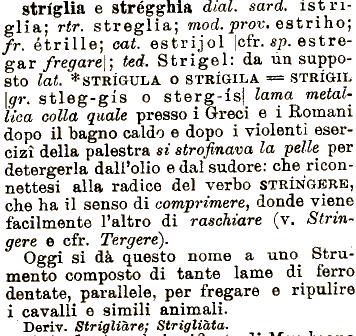 stríglia e strégghia dial. sard. istri-
glia; rtr. streglia; mod. prov. estriho;
fr. étrille; cat. estrijol |cfr. sp. estre-
gar fregare|; ted. Strigel: da un suppo-
sto lat. *STRÍGULA O STRÍGILA = STRÍGIL
|gr. stleg-gís o sterg-ís| lama metal-
lica colla quale presso i Greci e i Romani
dopo il bagno caldo e dopo i violenti eser-
cizî della palestra si strofinava la pelle per
detergerla dall'olio e dal sudore: che ricon-
nettesi alla radice del verbo STRÍNGERE,
che ha il senso di comprimere, donde viene
facilmente l'altro di raschiare (v. Strin-
gere e cfr. Tergere).
Oggi si dà questo nome a uno Stru-
mento composto di tante lame di ferro
dentate, parallele, per fregare e ripulire
i cavalli e simili animali.
Deriv. Strigliàre; Strigliàta.